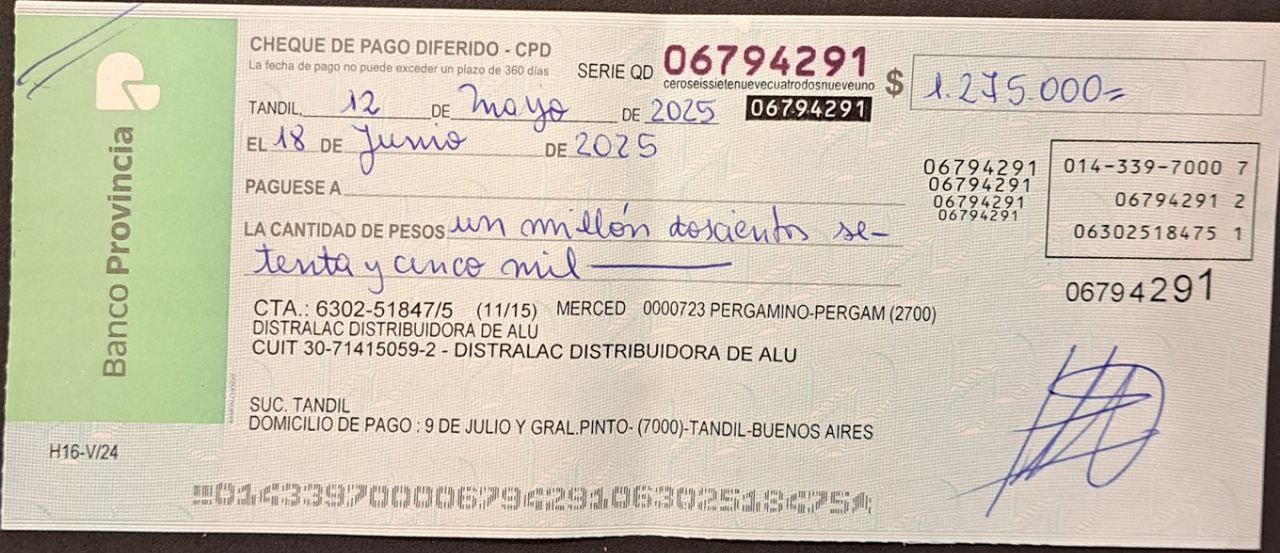 CHEQUE DE PAGO DIFERIDO - CPD
La fecha de pago no puede exceder un plazo de 360 días
SERIE QD 06794291
ceroseissietenuevecuatrodosnueveuno
06794291
$ 1.275.000=
TANDIL, 12 DE Mayo DE 2025
EL 18 DE Junio DE 2025
PAGUESE A
LA CANTIDAD DE PESOS un millón doscientos se-
tenta y cinco mil
06794291
06794291
06794291
06794291
014-339-7000 7
06794291 2
06302518475 1
06794291
CTA.: 6302-51847/5 (11/15) MERCED 0000723 PERGAMINO-PERGAM (2700)
DISTRALAC DISTRIBUIDORA DE ALU
CUIT 30-71415059-2 - DISTRALAC DISTRIBUIDORA DE ALU
SUC. TANDIL
DOMICILIO DE PAGO : 9 DE JULIO Y GRAL.PINTO- (7000)-TANDIL-BUENOS AIRES
Banco Provincia
H16-V/24
01433970000679429106302518475